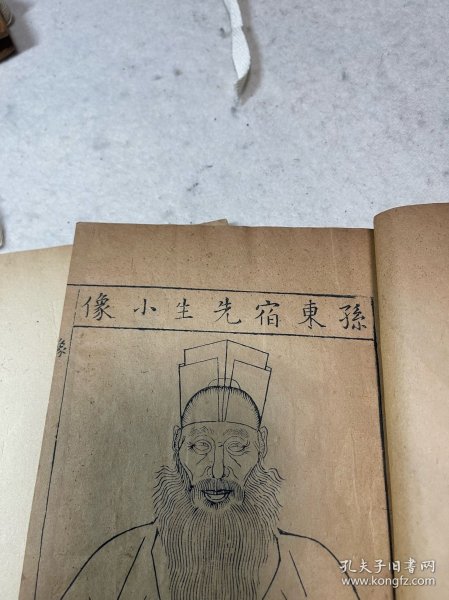 孫東宿先生小像
像
孔夫子旧书网
www.kongfz.com